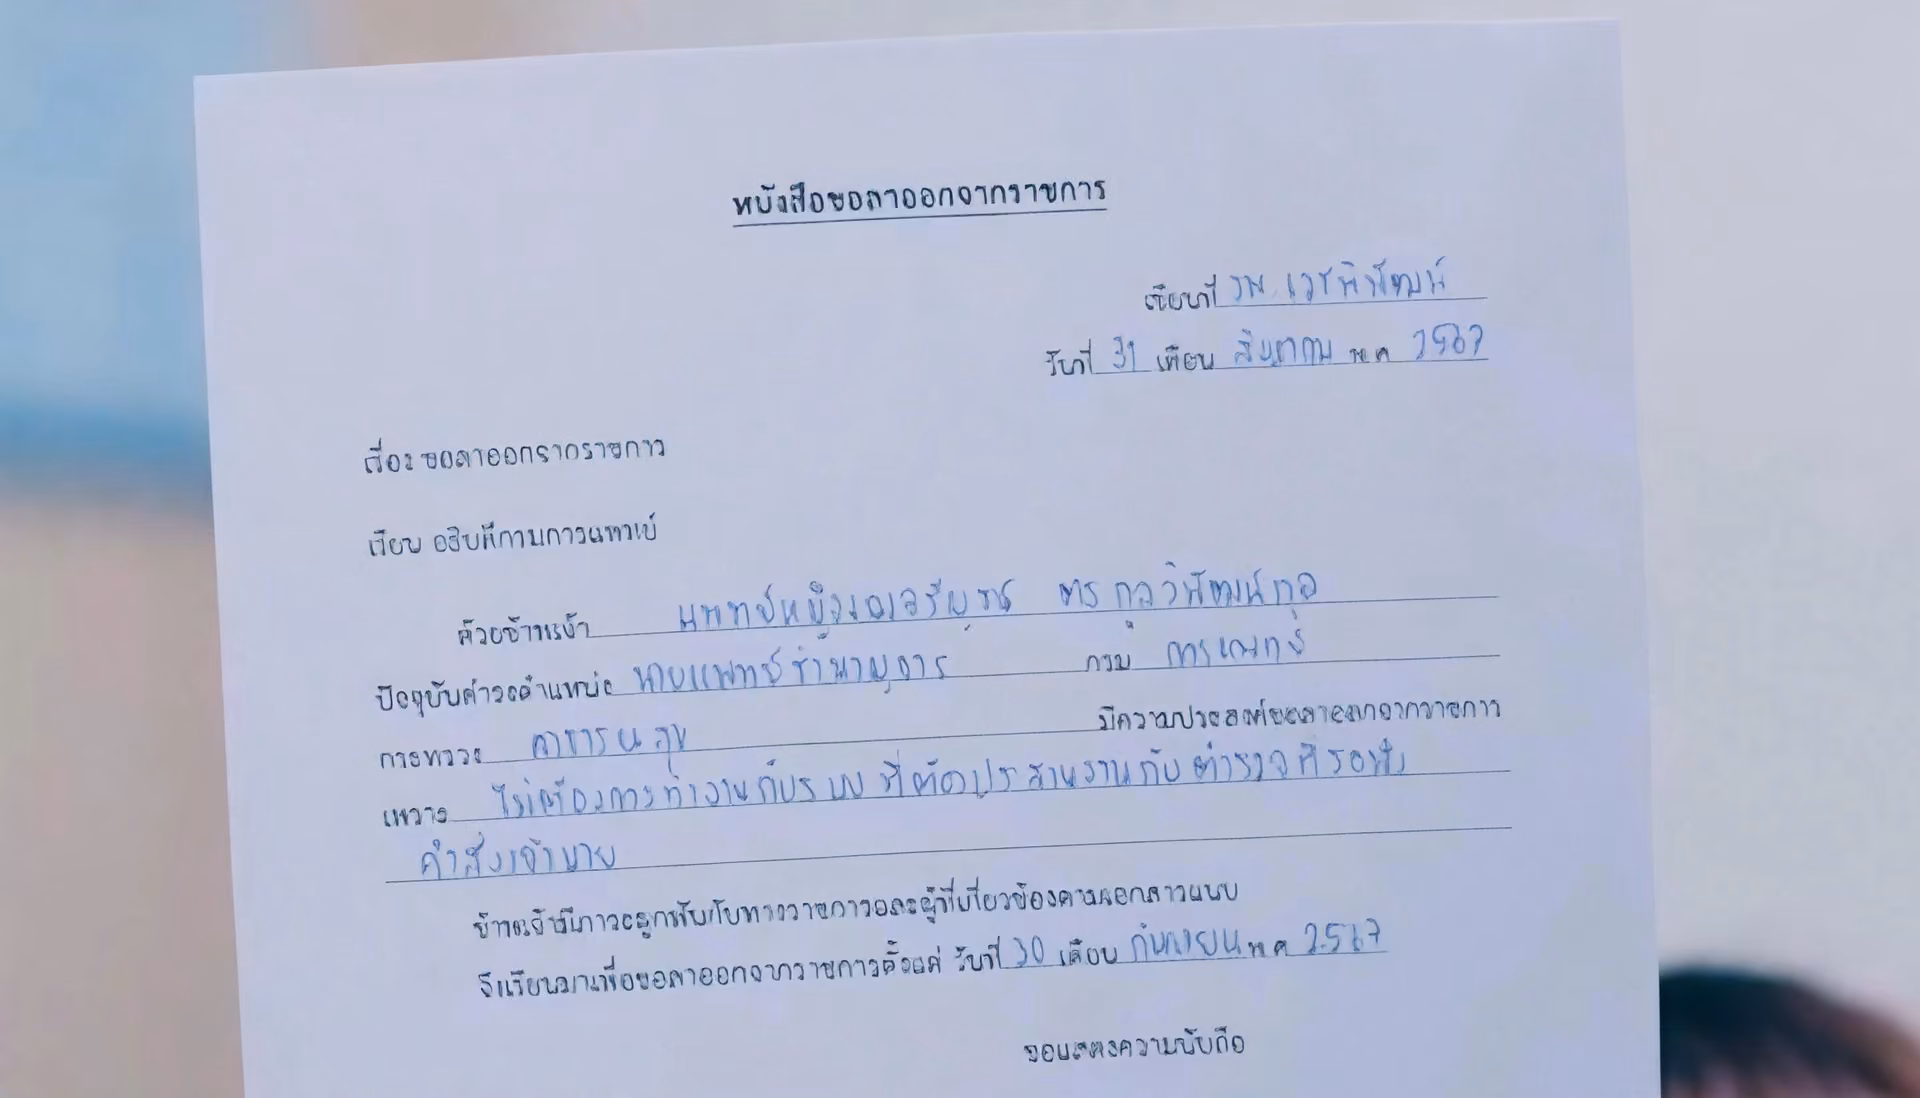 หนังสือขอลาออกจากราชการ
เขียนที่ รพ. เวชพิพัฒน์
วันที่ 31 เดือน สิงหาคม พ.ศ. 2567
เรื่อง ขอลาออกจากราชการ
เรียน อธิบดีกรมการแพทย์
ด้วยข้าพเจ้า แพทย์หญิง ตระกูลวิพัฒน์กุล
ปัจจุบันดำรงตำแหน่ง นายแพทย์ชำนาญการ กรม การแพทย์
กระทรวง สาธารณสุข มีความประสงค์ขอลาออกจากราชการ
เพราะ ไม่ต้องการทำงานกับระบบ ที่ต้องประสานงานกับ ตำรวจ ที่รอฟัง
คำสั่งเจ้านาย
ข้าพเจ้ามีภาระผูกพันกับทางราชการและผู้ที่เกี่ยวข้องตามเอกสารแนบ
จึงเรียนมาเพื่อขอลาออกจากราชการตั้งแต่ วันที่ 30 เดือน กันยายน พ.ศ. 2567
ขอแสดงความนับถือ